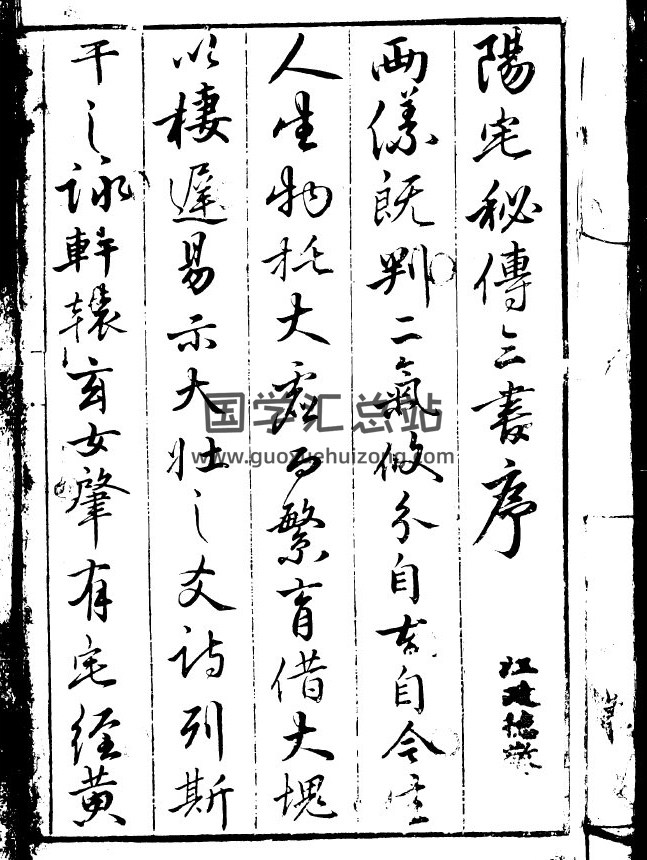 陽宅秘傳三書序
两儀既判二氣攸分自古自今生
人生物托大靈而繁育借大塊
以棲遲易示大壮之爻詩列斯
干之詠軒轅玄女肇有宅經黄
国学汇总站
www.guoxuehuizong.com